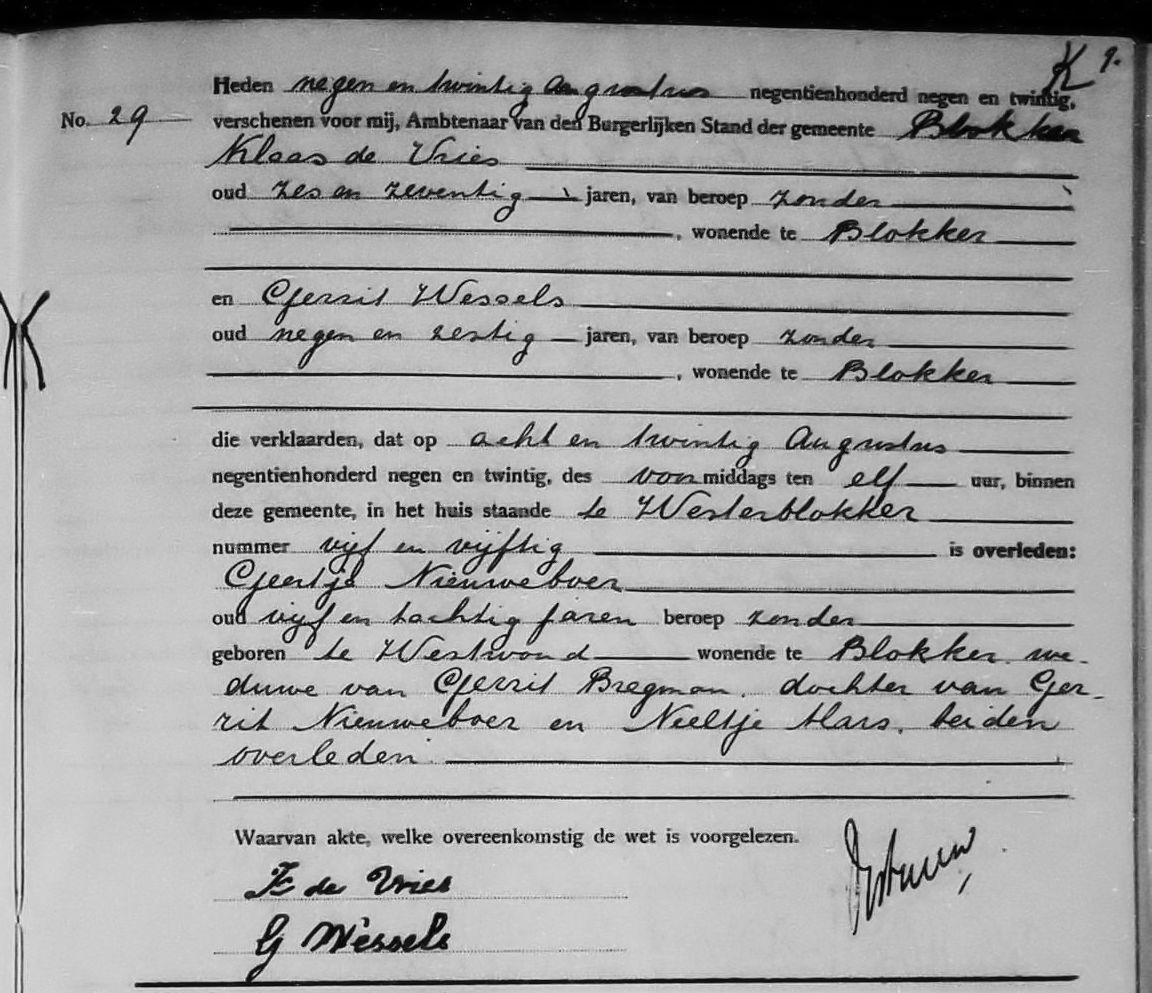 K 9.
Heden negen en twintig Augustus negentienhonderd negen en twintig,
No. 29 verschenen voor mij, Ambtenaar van den Burgerlijken Stand der gemeente Blokker
Klaas de Vries
oud zes en zeventig jaren, van beroep zonder
, wonende te Blokker
en Gerrit Wessels
oud negen en zestig jaren, van beroep zonder
, wonende te Blokker
die verklaarden, dat op acht en twintig Augustus
negentienhonderd negen en twintig, des voormiddags ten elf uur, binnen
deze gemeente, in het huis staande te Westerblokker
nummer vijf en vijftig is overleden:
Geertje Nieuweboer
oud vijf en tachtig jaren beroep zonder
geboren te Westwoud wonende te Blokker we-
duwe van Gerrit Bregman, dochter van Ger-
rit Nieuweboer en Neeltje Mars, beiden
overleden.
Waarvan akte, welke overeenkomstig de wet is voorgelezen.
K de Vries
G Wessels